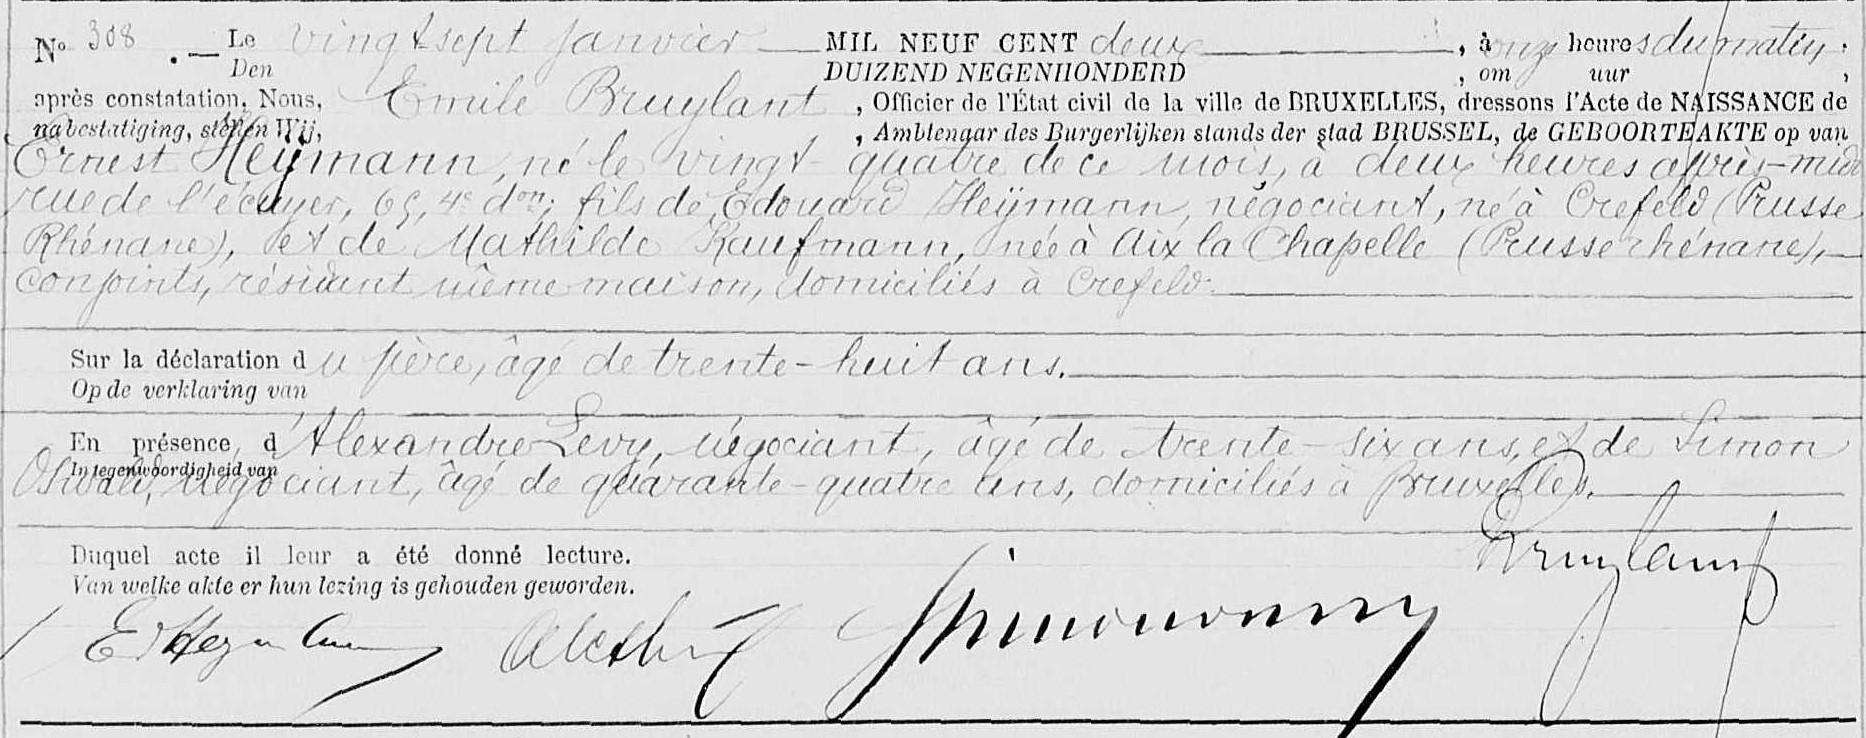 No 308 . — Le vingt sept janvier — MIL NEUF CENT deux — , à onze heures du matin .
Den DUIZEND NEGENHONDERD , om uur ,
après constatation, Nous, Emile Bruylant , Officier de l'État civil de la ville de BRUXELLES, dressons l'Acte de NAISSANCE de
na bestatiging, stellen Wij, , Ambtengar des Burgerlijken stands der stad BRUSSEL, de GEBOORTEAKTE op van
Ernest Heÿmann, né le vingt-quatre de ce mois, à deux heures après-midi
rue de l'écuyer, 65, 4e don; fils de Edouard Heÿmann, négociant, né à Crefeld (Prusse
Rhénane), et de Mathilde Kaufmann, née à Aix la Chapelle (Prusse rhénane), —
conjoints, résidant même maison, domiciliés à Crefeld. —
Sur la déclaration du père, âgé de trente-huit ans. —
Op de verklaring van
En présence, d'Alexandre Levy, négociant, âgé de trente-six ans, et de Simon
In tegenwoordigheid van
négociant, âgé de quarante-quatre ans, domiciliés à Bruxelles. —
Duquel acte il leur a été donné lecture.
Van welke akte er hun lezing is gehouden geworden.
Bruylant
Ed Heymann